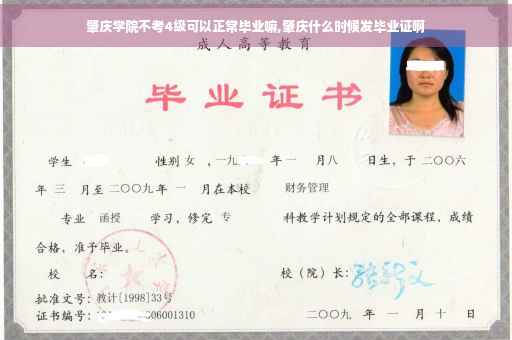 肇庆学院不考4级可以正常毕业嘛,肇庆什么时候发毕业证啊
成人高等教育
毕业证书
学生 性别 女 ,一九 年一 月八 日生,于二〇〇六
年 三 月至二〇〇九年 一 月在本校 财务管理
专业 函授 学习,修完 专 科教学计划规定的全部课程,成绩
合格,准予毕业。
校 名: 校(院)长:
批准文号:教计[1998]33号
证书编号: 06001310 二〇〇九 年 一 月 十 日